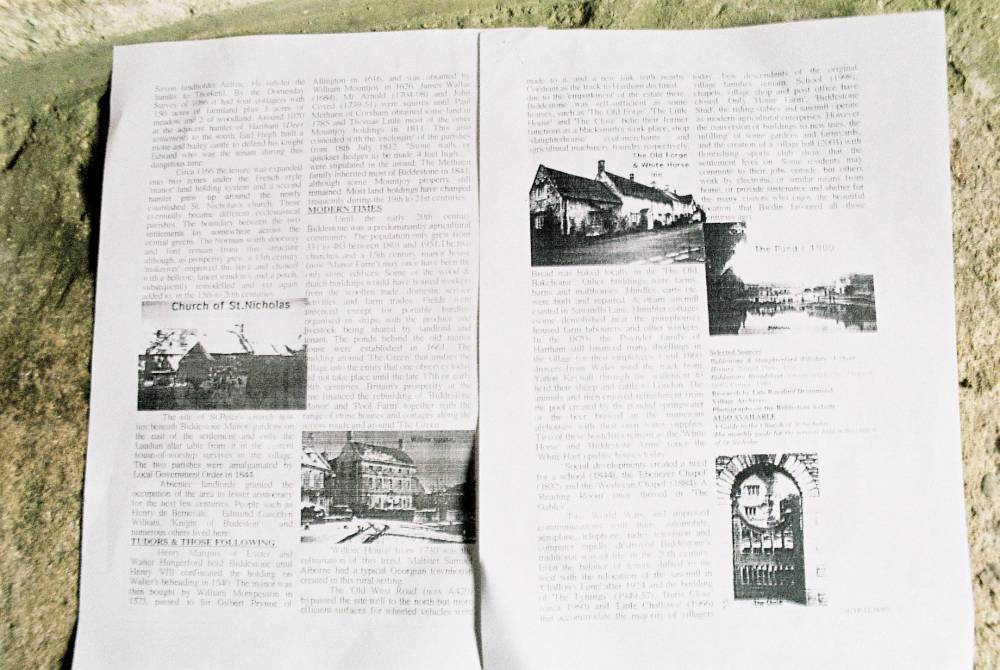 Saxon landholder
hamlet to Thorkell. By the Domesday
Survey of 1086 it had four cottages with
150 acres of farmland plus 3 acres of
meadow and 2 of woodland. Around 1070
at the adjacent hamlet of Hartham
settlement) to the south, Earl Hugh built a
motte and bailey castle to defend his knight
Edward who was the tenant during this
dangerous time.
Circa 1166 the tenure was expanded
into two zones under the French style
'manor' land holding system and a second
hamlet grew up around the newly
established St. Nicholas's church. These
eventually became different ecclesiastical
parishes. The boundary between the two
settlements lay somewhere across the
central greens. The Norman south doorway
and font remain from this structure
although, as prosperity grew, a 13th century
'makeover' improved the nave and chancel
with a bellcote, lancet windows, and a porch,
subsequently remodelled and yet again
added to, in the 15th to 20th centuries.
Church of St.Nicholas
The site of St.Peter's church now
lies beneath 'Biddestone Manor' gardens on
the east of the settlement and only the
Laudian altar table from it in the
house-of-worship survives in the village.
The two parishes were amalgamated by
Local Government Order in 1844.
Absentee landlords granted the
occupation of the area to lesser aristocracy
for the next few centuries. People such as
Henry de Edmund Gascelyn
William, 'Knight of Budeston' and
numerous others lived here.
TUDORS & THOSE FOLLOWING
Henry Marquis of Exeter and
Walter Hungerford held Biddestone until
Henry VIII confiscated the holding on
Walter's beheading in 1540. The manor was
then bought by William Mompesson in
1573, passed to Sir Gilbert Prynne of
Allington in 1616, and was obtained by
William Mountjoy in 1626. James Wallis
(1684), My Arnold (1704-08) and John
Creed (1739-51) were squires until Paul
Methuen of Corsham obtained some land in
1785 and Thomas Little most of the other
Mountjoy holdings in 1811. This also
coincided with the 'enclosure' of the parishes
from 18th July 1812. "Stone walls or
quickset hedges to be made 4 feet high,"
were stipulated in the award. The Methuen
family inherited most of Biddestone in 1841,
although some Mountjoy property still
remained. Most land holdings have changed
frequently during the 19th to 21st centuries.
MODERN TIMES
Until the early 20th century
Biddestone was a predominantly agricultural
community. The population only grew from
331 to 483 between 1801 and 1951. The two
churches and a 15th century manor house
(now 'Manor Farm') may once have been the
only stone edifices. Some of the wood &
thatch buildings would have housed workers
from the woollen trade, domestic service
activities and farm trades. Fields were
unfenced except for portable hurdles,
organised in strips, with the produce and
livestock being shared by landlord and
tenant. The ponds behind the old manor
house were established in 1661. The
building around 'The Green' that unifies the
village into the entity that one observes today
did not take place until the late 17th or early
18th centuries. Britain's prosperity at the
time financed the rebuilding of 'Biddestone
Manor' and 'Pool Farm' together with the
ranges of stone houses and cottages along the
access roads and around 'The Green'.
Willow House
'Willow House' from (1730) was the
culmination of this trend. 'Maltster Samuel
Alborne had a typical Georgian townhouse
created in this rural setting.
The 'Old West Road' (now A420)
bypassed the site well to the north but more
efficient surfaces for wheeled vehicles were
made to it, and a new link with nearby
Corsham as the track to Hartham declined.
due to the 'emparkment' of the estate there.
Biddestone was self-sufficient as some
houses, such as 'The Old Forge', 'The Little
House' and 'The Close' belie their former
function as a blacksmith's work place, shop
/slaughterhouse / coal-merchants and
agricultural machinery foundry respectively.
The Old Forge
& White Horse
Inn
Bread was baked locally in the 'The Old
Bakehouse'. Other buildings were farms,
barns and malthouses. Humbler cottages
were built and repaired. A steam sawmill
existed in Sawmills Lane. Humbler cottages
(some demolished near the pumphouse)
housed farm labourers and other workers.
In the 1870s the Poynder family of
Hartham still financed many dwellings in
the village for their employees. Until 1900
drovers from Wales used the track from
Yatton Keynell through the settlement to
herd their sheep and cattle to London. The
animals and men enjoyed refreshment from
the pool created by the ponded springwater
or the beer brewed at the numerous
alehouses with their own water supplies.
Two of these hostelries remain as the 'White
Horse' and 'Biddestone Arms' (once the
'White Hart') public houses today.
Social developments created a need
for a school (1844), the Ebenezer Chapel
(1832) and the 'Wesleyan Chapel' (1884). A
'Reading Room' once thrived in 'The
Gables'.
Two World Wars, and improved
communications with train, automobile,
aeroplane, telephone, radio, television and
computer rapidly destroyed Biddestone's
traditional way of life in the 20th century.
Even the balance of tenure shifted to the
west with this relocation of the sawmill in
'Challows Lane' after 1954 and the building
of 'The Leynings' (1949-57), 'Butts Close'
(circa 1960) and 'Little Challows' (1966)
that accommodate the majority of villagers
today. Few descendants of the original
village families remain. School (1998),
chapels, village shop and post office have
closed. Only 'Home Farm', 'Biddestone
Stud', the riding stables and sawmill operate
as modern agricultural enterprises. However
the conversion of buildings to new uses, the
'infilling' of some gardens and farmyards,
and the creation of a village hall (2003) with
flourishing sports club, shows that the
settlement lives on. Some residents may
commute to their jobs outside, but others
work by electronic or similar means from
home, or provide sustenance and shelter for
the many visitors who enjoy the beautiful
location that Biedin favoured all those
centuries ago.
The Pond c 1900
Selected Sources
Research by Cara Rosalind Drummond
Village Archives
Photographs on the Biddestone website
ALSO AVAILABLE
A Guide to the Church of St Nicholas
of St Nicholas